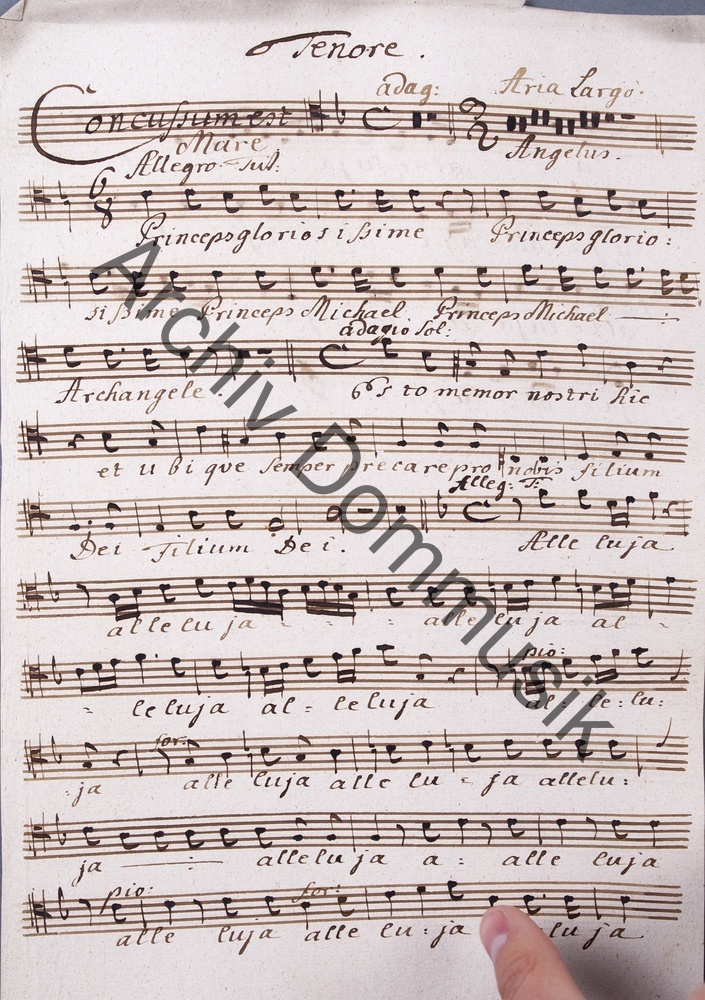 Tenore.
adag: Aria Largo.
Concussum est
Mare Angelus.
Allegro Tut:
6
8
Princeps gloriosissime Princeps glorio:
sissime Princeps Michael Princeps Michael
adagio Sol:
Archangele. Esto memor nostri hic
et ubique semper precare pro nobis filium
Alleg: T:
Dei filium Dei. Alleluja
alleluja - - - alleluja al -
pio:
- leluja al - leluja al - le - lu:
for:
:ja alleluja allelu - ja allelu:
ja alleluja a: alleluja
pio: for:
alleluja allelu:ja luja
Archiv Dommusik